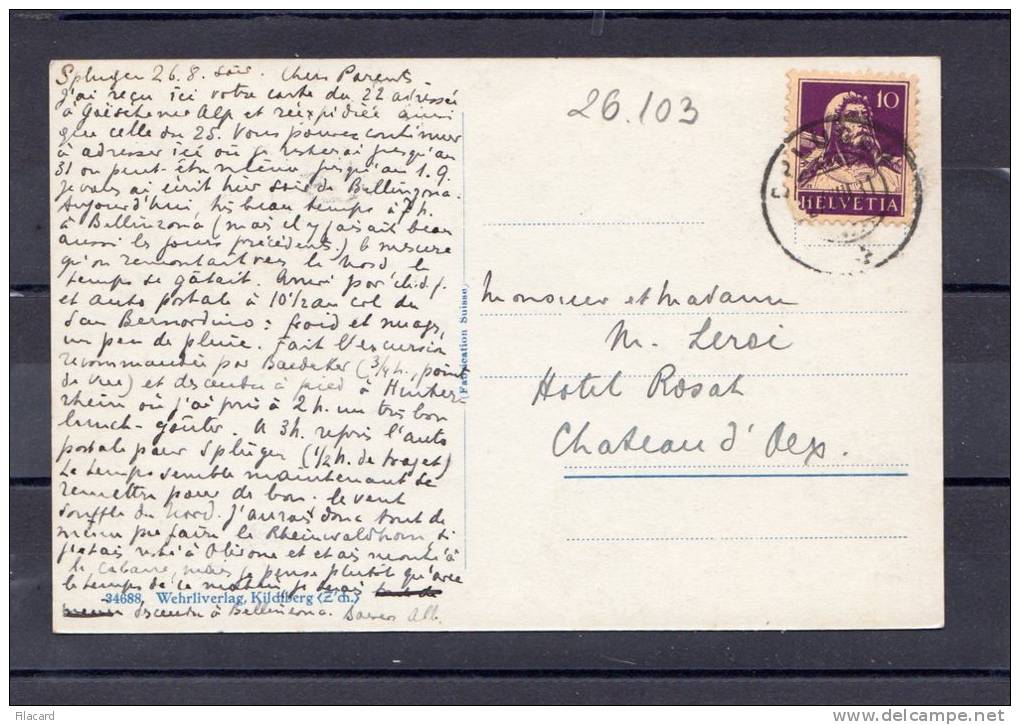 Splugen 26.8. soir. Chers Parents.
J'ai reçu ici votre carte du 22 adressée
à Göschener Alp et réexpédiée ainsi
que celle du 25. Vous pouvez continuer
à adresser ici où je resterai jusqu'au
31 ou peut-être même jusqu'au 1.9.
Je vous ai écrit hier soir de Bellinzona.
Aujourd'hui très beau temps à 7 h.
à Bellinzona (mais il y faisait beau
aussi les jours précédents) à mesure
qu'on remontait vers le nord le
temps se gâtait. Arrivé par ch.d.f.
et auto postale à 10 1/2 au col du
San Bernardino: froid et nuages,
un peu de pluie. Fait l'excursion
recommandée par Baedeker (3/4 h., point
de vue) et descendu à pied à Hinter-
rhein où j'ai pris à 2 h. un très bon
lunch-goûter. A 3h. repris l'auto
postale pour Splügen (1/2 h. de trajet)
Le temps semble maintenant se
remettre pour de bon. Le vent
souffle du nord. J'aurais donc tout de
même pu faire le Rheinwaldhorn si
j'étais resté à Olivone et étais monté à
la cabane, mais je pense plutôt qu'avec
le temps de ce matin je serais
descendu à Bellinzona. Baisers Alb.
34688, Wehrliverlag, Kilchberg (Zch.)
(Fabrication Suisse)
26.103
10
HELVETIA
Monsieur et Madame
M. Leroi
Hotel Rosat
Chateau d'Oex.
Filacard
www.delcampe.net